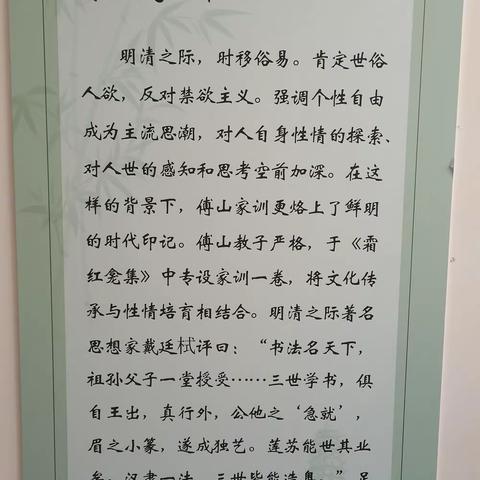 明清之际，时移俗易。肯定世俗
人欲，反对禁欲主义。强调个性自由
成为主流思潮，对人自身性情的探索、
对人世的感知和思考空前加深。在这
样的背景下，傅山家训更烙上了鲜明
的时代印记。傅山教子严格，于《霜
红龛集》中专设家训一卷，将文化传
承与性情培育相结合。明清之际著名
思想家戴廷栻评曰：“书法名天下，
祖孙父子一堂授受……三世学书，俱
自王出，真行外，公他之‘急就’，
眉之小篆，遂成独艺。莲苏能世其业